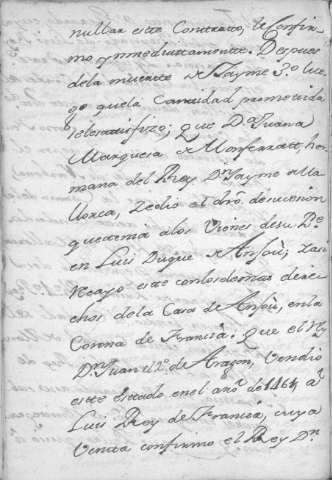 nultar este Contrato, le Confir-
mo ynmediatamente. Despues
dela muerte de Jayme 3.º lue
go quela Cantidad prometida
se le satisfizo; que D.ª Juana
Marquesa de Monferratt, her
mana del Rey D.n Jayme de Ma
llorca, Zedio el dro. de suzesion
que tenia alos Vienes de su P.e
en Luis Duque de Anjou; y asi
recayo este conlos demas dere
chos dela Casa de Anjou, enla
Corona de Francia: que el Rey
D.n Juan el 2.º de Aragon, Vendio
este estado enel año de 1464 a
Luis Rey de Francia, cuya
Venta confirmo el Rey D.n